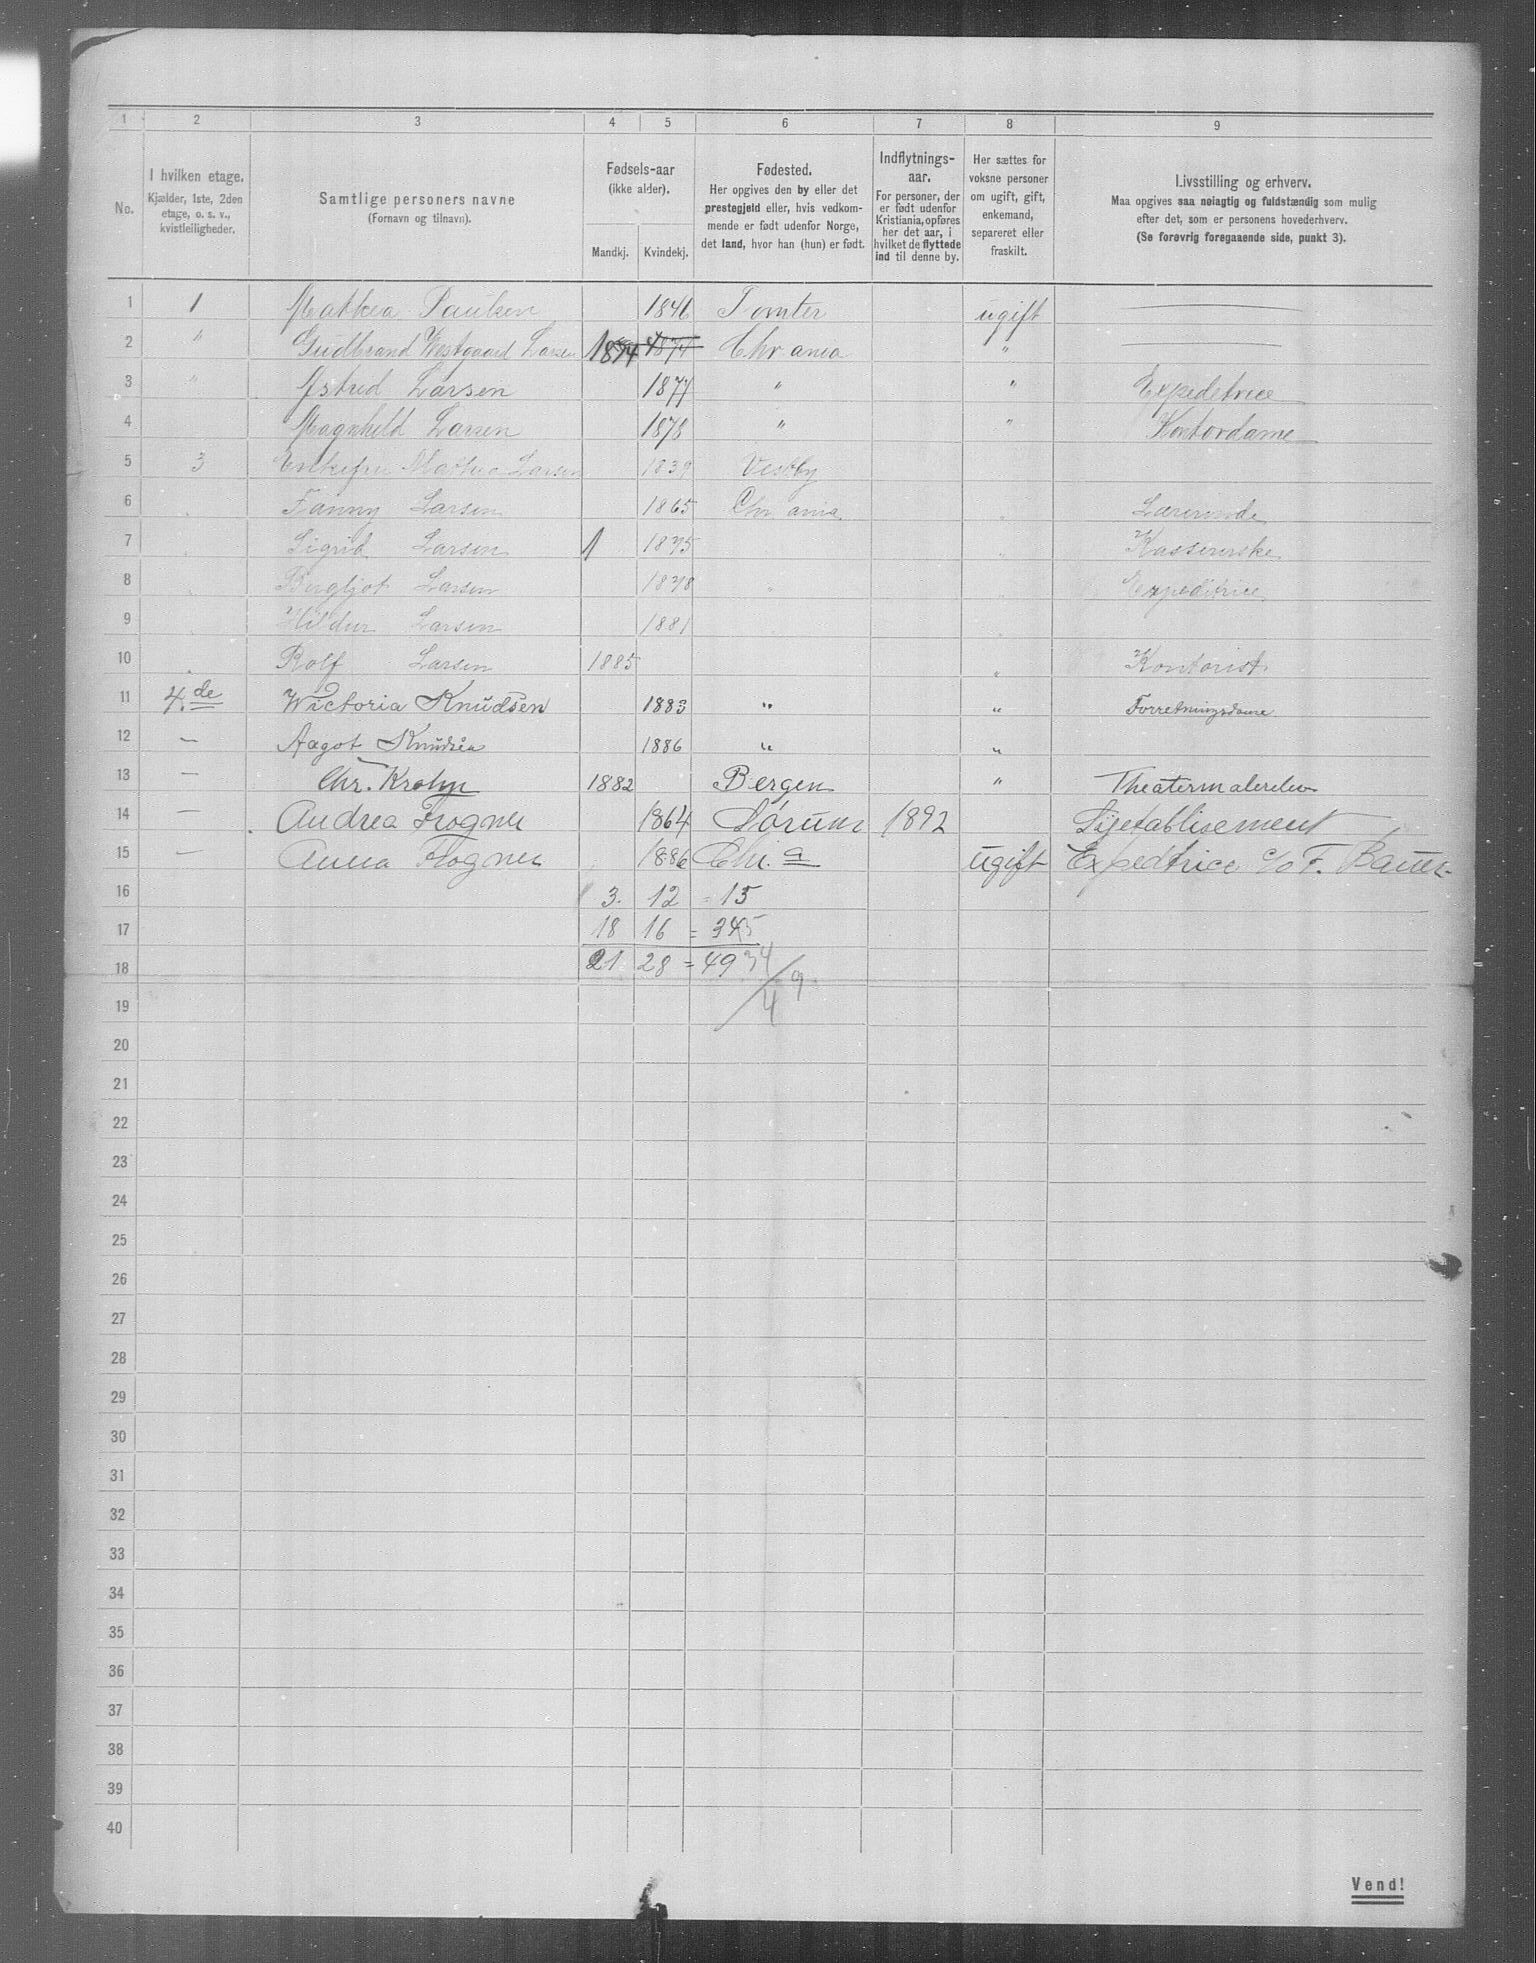 1 2 3 4 5 6 7 8 9
No.
I hvilken etage.
Kjælder, 1ste, 2den
etage, o. s. v.,
kvistleiligheder.
Samtlige personers navne
(Fornavn og tilnavn).
Fødsels-aar
(ikke alder).
Mandkj. Kvindekj.
Fødested.
Her opgives den by eller det
prestegjeld eller, hvis vedkom-
mende er født udenfor Norge,
det land, hvor han (hun) er født.
Indflytnings-
aar.
For personer, der
er født udenfor
Kristiania, opføres
her det aar, i
hvilket de flyttede
ind til denne by.
Her sættes for
voksne personer
om ugift, gift,
enkemand,
separeret eller
fraskilt.
Livsstilling og erhverv.
Maa opgives saa nøiagtig og fuldstændig som mulig
efter det, som er personens hovederhverv.
(Se forøvrig foregaaende side, punkt 3).
1 1 Paulsen 1846 Tomter ugift
2 " Gudbrand Westgaard Larsen 1874 1874 Chrania "
3 " Astrid Larsen 1877 " " Expeditrice
4 Magnhild Larsen 1878 " " Kontordame
5 3 Enkefru Larsen 1839 Vestby
6 Fanny Larsen 1865 Chrania " Lærerinde
7 Sigrid Larsen 1 1875 " Kasserske
8 Bergljot Larsen 1878 " Expeditrice
9 Hildur Larsen 1881
10 Rolf Larsen 1885 " Kontorist
11 4.de Wictoria Knudsen 1883 " " Forretningsdame
12 — Aagot Knudsen 1886 " "
13 — Chr. Krohn 1882 Bergen " Theatermalerelev
14 — Andrea Frogner 1864 Sørum 1892 Syetablisement
15 — Anna Frogner 1886 Chr.a ugift Expedtrice c/o F. Bauer
16 3. 12 = 15
17 18 16 = 34
18 21 28 = 49 34
19 4 9
20
21
22
23
24
25
26
27
28
29
30
31
32
33
34
35
36
37
38
39
40
Vend!